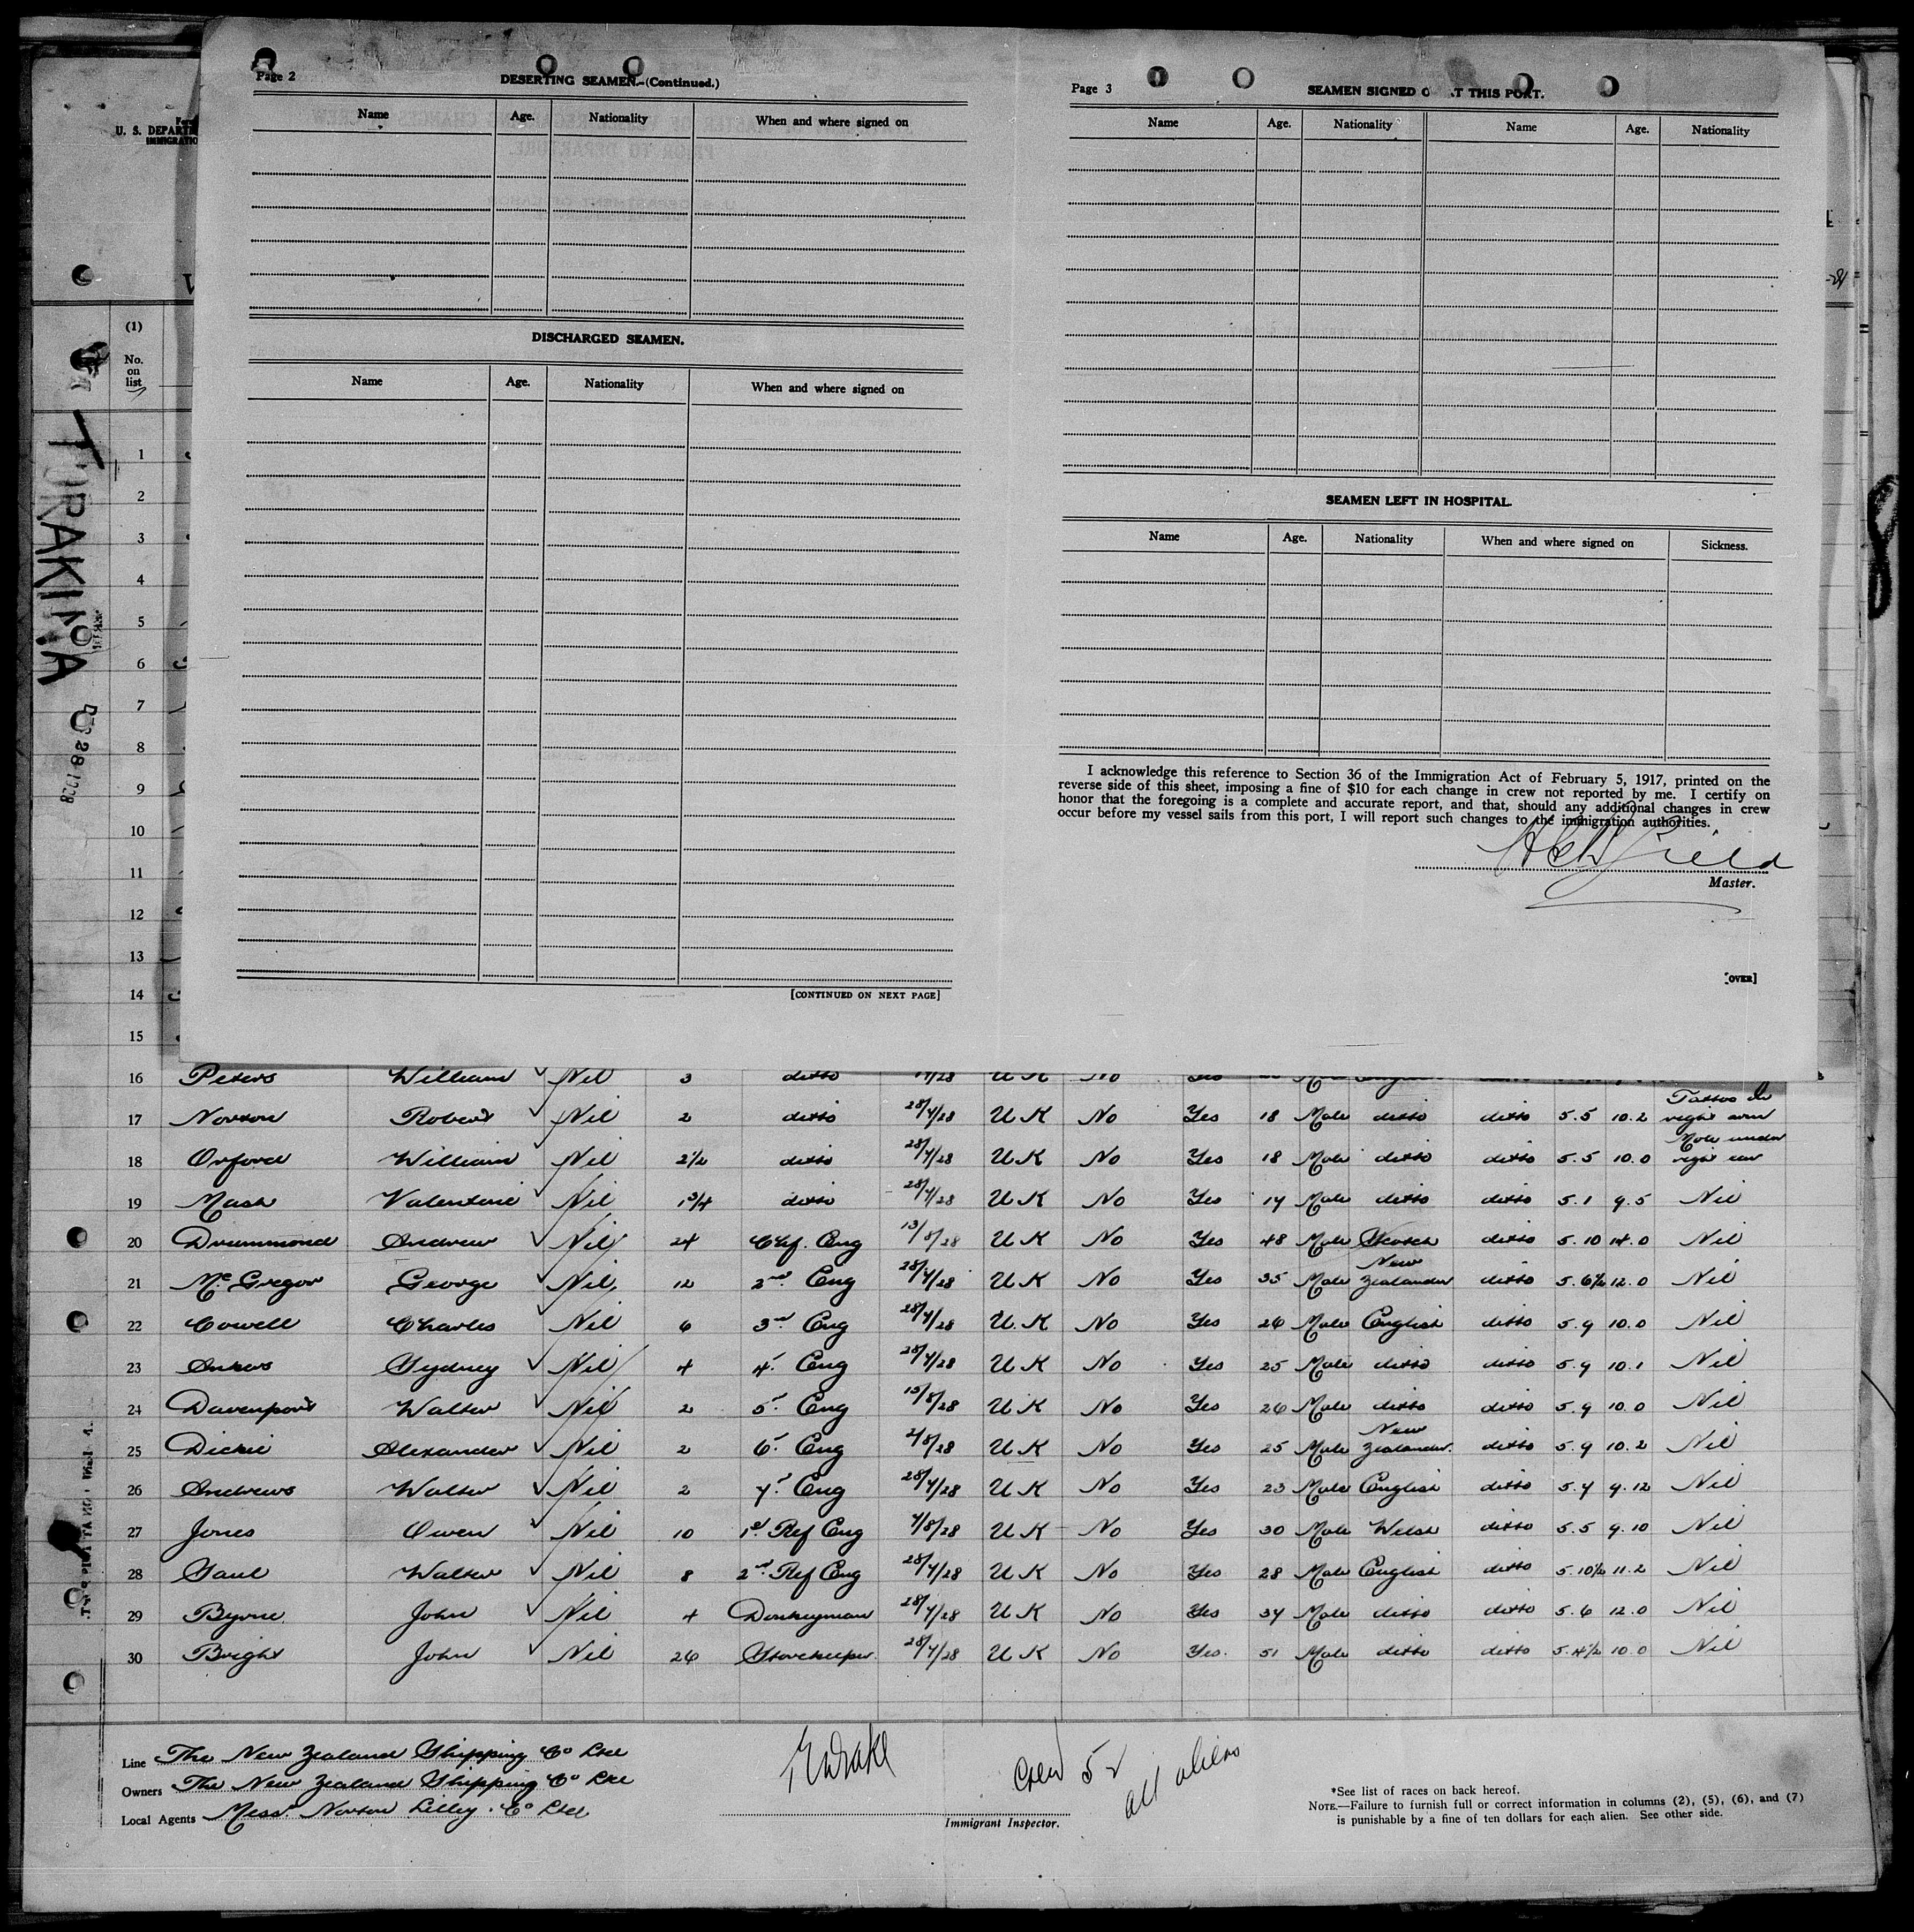 Page 2
DESERTING SEAMEN-(Continued.)
Name Age. Nationality When and where signed on
DISCHARGED SEAMEN.
Name Age. Nationality When and where signed on
[CONTINUED ON NEXT PAGE]
Page 3
SEAMEN SIGNED AT THIS PORT.
Name Age. Nationality Name Age. Nationality
SEAMEN LEFT IN HOSPITAL.
Name Age. Nationality When and where signed on Sickness.
I acknowledge this reference to Section 36 of the Immigration Act of February 5, 1917, printed on the
reverse side of this sheet, imposing a fine of $10 for each change in crew not reported by me. I certify on
honor that the foregoing is a complete and accurate report, and that, should any additional changes in crew
occur before my vessel sails from this port, I will report such changes to the immigration authorities.
Field
Master.
[OVER]
U. S. DEPART
IMMIGRATIO
(1)
No.
on
list
TURAKINA
28 1928
1
2
3
4
5
6
7
8
9
10
11
12
13
14
15
16 Peters William Nil 3 ditto /28 U K No Yes Male
17 Norton Robert Nil 2 ditto 28/7/28 U K No Yes 18 Male ditto ditto 5.5 10.2 Tattoo on right arm
18 Orford William Nil 2½ ditto 28/7/28 U K No Yes 18 Male ditto ditto 5.5 10.0 Mole under right ear
19 Mash Valentine Nil 1¾ ditto 28/7/28 U K No Yes 17 Male ditto ditto 5.1 9.5 Nil
20 Drummond Andrew Nil 24 Chf. Eng 13/8/28 U K No Yes 48 Male Scotch ditto 5.10 14.0 Nil
21 McGregor George Nil 12 2nd Eng 28/7/28 U K No Yes 35 Male New Zealander ditto 5.6½ 12.0 Nil
22 Cowell Charles Nil 6 3rd Eng 28/7/28 U.K No Yes 26 Male English ditto 5.9 10.0 Nil
23 Ankers Sydney Nil 4 4. Eng 28/7/28 U.K No Yes 25 Male ditto ditto 5.9 10.1 Nil
24 Davenport Walter Nil 2 5. Eng 13/8/28 U K No Yes 26 Male ditto ditto 5.9 10.0 Nil
25 Dickie Alexander Nil 2 6. Eng 2/8/28 U K No Yes 25 Male New Zealander. ditto 5.9 10.2 Nil
26 Andrews Walter Nil 2 7. Eng 28/7/28 U K No Yes 23 Male English ditto 5.7 9.12 Nil
27 Jones Owen Nil 10 1st Ref Eng 7/8/28 U K No Yes 30 Male Welsh ditto 5.5 9.10 Nil
28 Saul Walter Nil 8 2nd Ref Eng 28/7/28 U K No Yes 28 Male English ditto 5.10½ 11.2 Nil
29 Byrne John Nil 4 Donkeyman 28/7/28 U K No Yes 37 Male ditto ditto 5.6 12.0 Nil
30 Bright John Nil 26 Storekeeper 28/7/28 U K No Yes. 51 Male ditto ditto 5.4½ 10.0 Nil
Line The New Zealand Shipping Co Ltd
Owners The New Zealand Shipping Co Ltd
Local Agents Messrs. Norton Lilley Co Ltd
Immigrant Inspector.
Crew 52
all aliens
*See list of races on back hereof.
NOTE.—Failure to furnish full or correct information in columns (2), (5), (6), and (7)
is punishable by a fine of ten dollars for each alien. See other side.